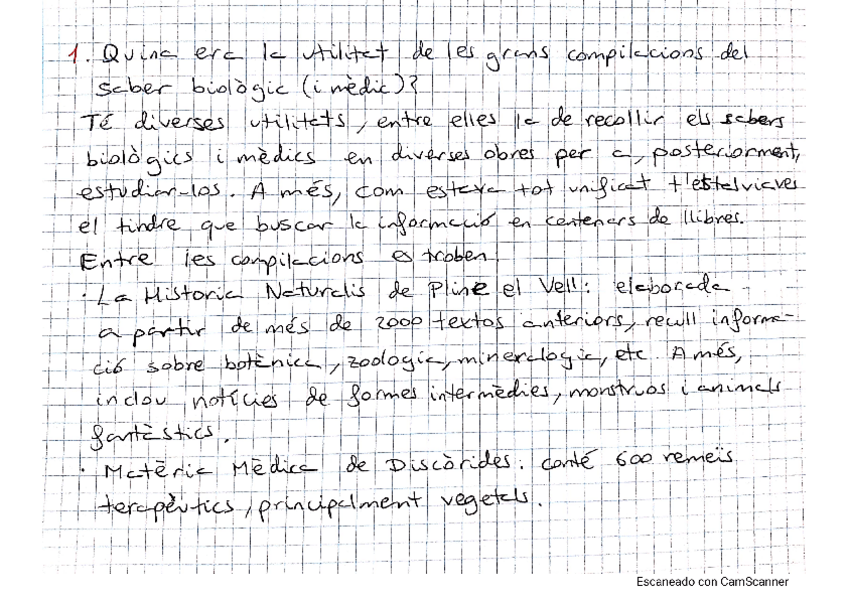 1. Quina era la utilitat de les grans compilacions del
saber biològic (i mèdic)?
Té diverses utilitats, entre elles la de recollir els sabers
biològics i mèdics en diverses obres per a, posteriorment,
estudiar-los. A més, com estava tot unificat t'estalviaves
el tindre que buscar la informació en centeners de llibres.
Entre les compilacions es troben
· La Historia Naturalis de Pline el Vell: elaborada
a partir de més de 2000 textos anteriors, recull informa-
ció sobre botànica, zoologia, mineralogia, etc. A més,
inclou notícies de formes intermèdies, monstruos i animals
fantàstics.
· Matèria Mèdica de Discòrides. conté 600 remeis
terapèutics, principalment vegetals.
Escaneado con CamScanner